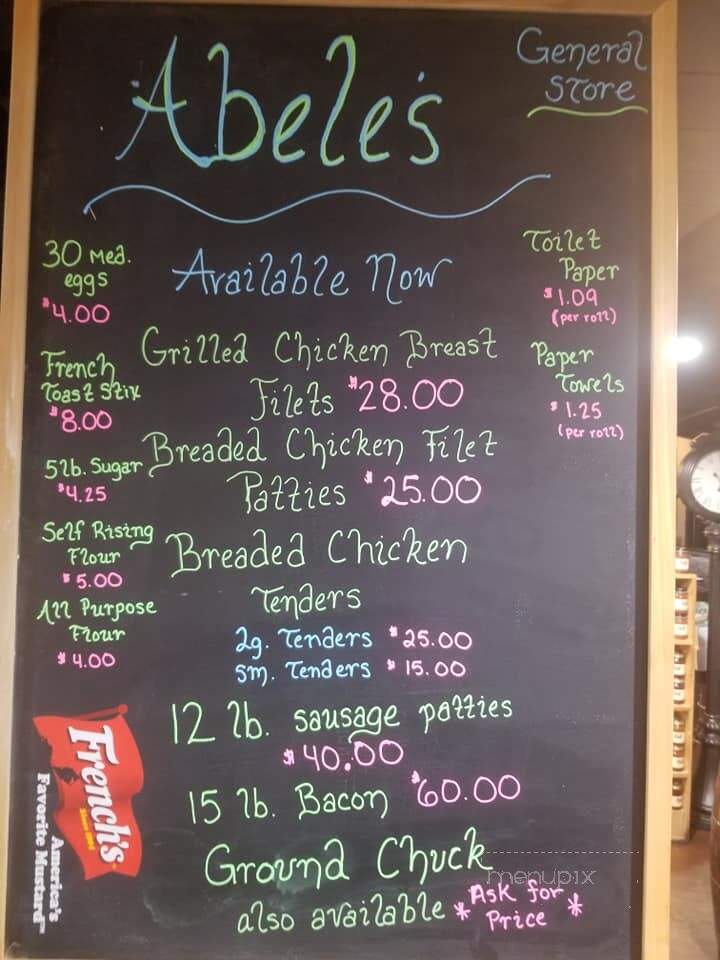 Abele's
General
Store
30 Med.
eggs
$4.00
French
Toast Stix
$8.00
5lb. Sugar
$4.25
Self Rising
Flour
$5.00
All Purpose
Flour
$4.00
Available Now
Grilled Chicken Breast
Filets $28.00
Breaded Chicken Filet
Patties $25.00
Breaded Chicken
Tenders
lg. Tenders $25.00
sm. Tenders $15.00
12 lb. sausage patties
$40.00
15 lb. Bacon $60.00
Ground Chuck
also available *Ask for
Price *
Toilet
Paper
$1.09
(per roll)
Paper
Towels
$1.25
(per roll)
French's
Since 1904
America's
Favorite Mustard™
menupix